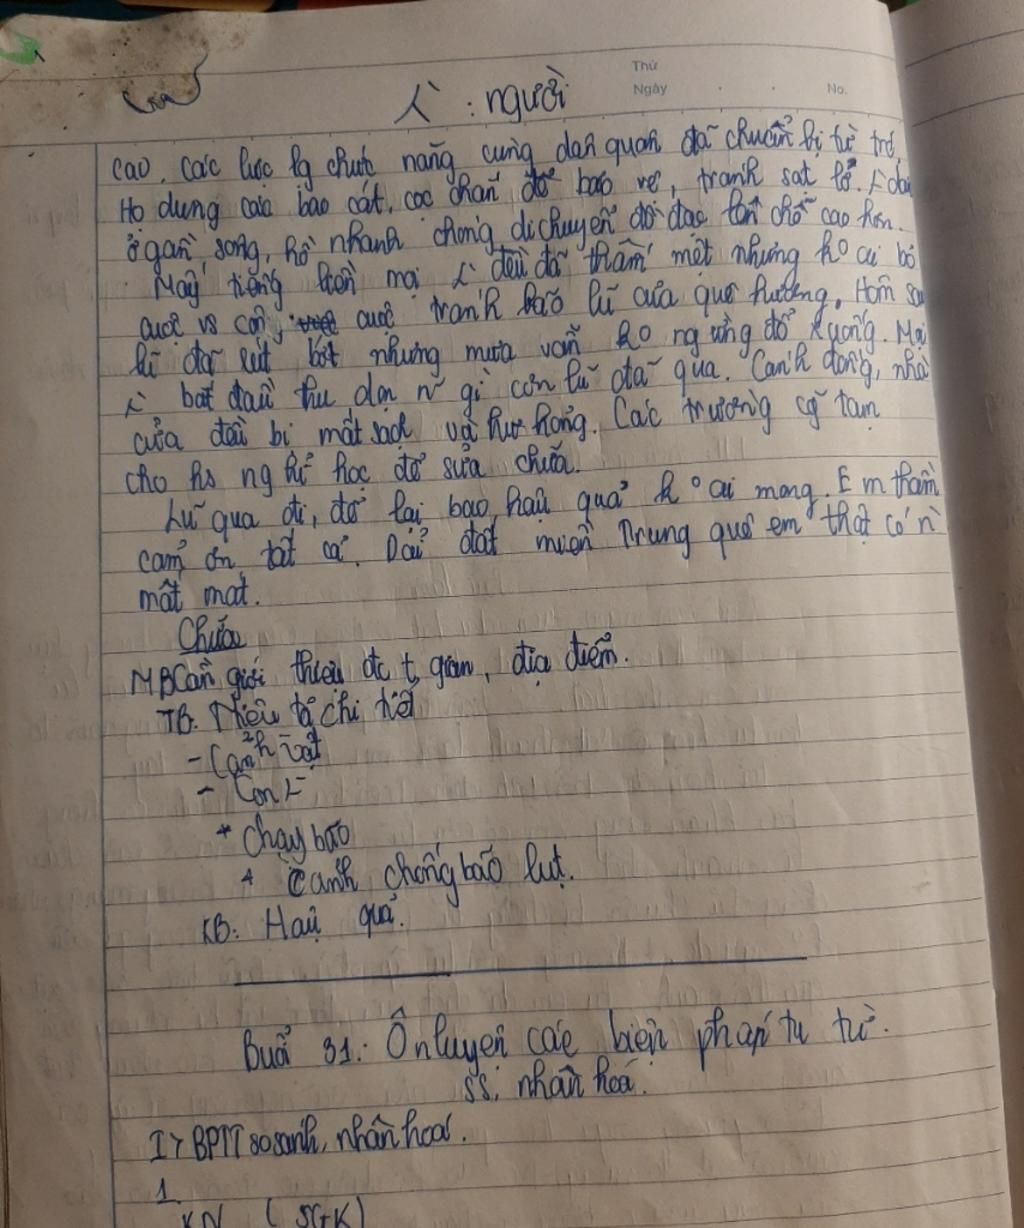 Thứ
Ngày . . No.
人 : người
cao. Các lực lg chức năng cùng dân quân đã chuẩn bị từ trc
Họ dùng các bao cát, cọc chắn để bảo vệ, tránh sạt lở.
ở gần sông, hồ nhanh chóng di chuyển đồ đạc lên chỗ cao hơn.
Mấy tiếng liền mọi 人 đều đã thấm mệt nhưng ko ai bỏ
cuộc vs công cuộc tránh bão lũ của quê hương. Hôm sau
lũ đã rút bớt nhưng mưa vẫn ko ngừng đổ xuống. Mọi
人 bắt đầu thu dọn n~ gì cơn lũ đã qua. Cánh đồng, nhà
cửa đều bị mất sạch và hư hỏng. Các trường cg~ tạm
cho hs nghỉ học để sửa chữa.
Lũ qua đi, để lại bao hậu quả ko ai mong. Em thầm
cảm ơn tất cả. Dải đất miền Trung quê em thật có n`
mất mát.
Chữa
MB Cần giới thiệu đc t. gian, địa điểm.
TB. Miêu tả chi tiết
- Cảnh vật
- Con 人
+ Chạy bão
+ Cảnh chống bão lụt.
KB: Hậu quả.
Buổi 31: Ôn luyện các biện pháp tu từ.
SS, nhân hoá.
I> BPTT so sánh, nhân hoá.
1
KN (SGK)